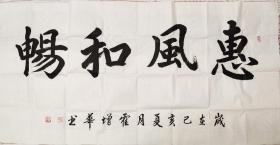 惠風和暢
歲在己亥夏月霍增華书